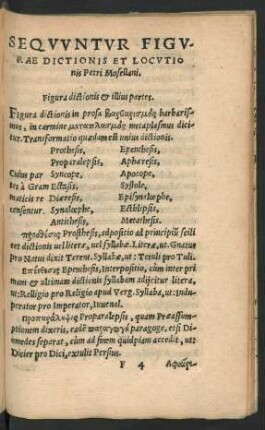 SEQVVNTVR FIGV
RAE DICTIONIS ET LOCVTIO
nis Petri Mosellani.
Figura dictionis & illius partes.
Figura dictionis in prosa βαρβαρισμὸς barbaris
mus, in carmine μεταπλασμὸς metaplasmus dici
tur. Transformatio quædam est unius dictionis.
Prosthesis, Epenthesis,
Proparalepsis, Aphæresis,
Cuius par Syncope, Apocope,
tes à Gram Ectasis, Systole,
maticis re Diæresis, Episynalœphe,
censentur. Synalœphe, Ecthlipsis,
Antithesis, Metathesis.
πρόσθεσις Prosthesis, adpositio ad principiũ scili
cet dictionis uel literæ, uel syllabæ. Literæ, ut: Gnatus
pro Natus dixit Terent. Syllabæ, ut: Tetuli pro Tuli.
Ἐπένθεσις Epenthesis, Interpositio, cùm inter pri
mam & ultimam dictionis syllabam adijcitur litera,
ut: Relligio pro Religio apud Verg. Syllaba, ut: Indu
perator pro Imperator, Iuuenal.
προπαράληψις Proparalepsis, quam Præassum-
ptionem dixeris, παραγωγὴ paragoge, etsi Dio
medes separat, cùm ad finem quidpiam accedit, ut:
Dicier pro Dici, exulit Persius.
F 4 Ἀφαίρε-